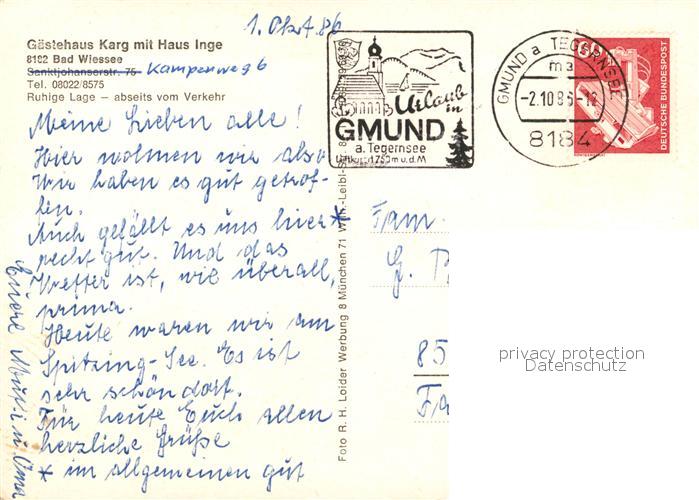 1. Okt. 86
Gästehaus Karg mit Haus Inge
8182 Bad Wiessee
Sanktjohanserstr. 75 Kampenweg 6
Tel. 08022/8575
Ruhige Lage – abseits vom Verkehr
Meine Lieben alle!
Hier wohnen wir also
Wir haben es gut getrof-
fen.
Auch gefällt es uns hier *
recht gut. Und das
Wetter ist, wie überall,
prima.
Heute waren wir am
Spitzing-See. Es ist
sehr schön dort.
Für heute Euch allen
herzliche Grüße
* im allgemeinen gut
Euere Mutti u. Oma
Foto R. H. Loider Werbung 8 München 71 Wilh.-Leibl-Str.
Urlaub
in
GMUND
a. Tegernsee
Luftkurort 750m u.d.M
GMUND a TEGERNSEE
ma
-2.10.86-12
8184
60
DEUTSCHE BUNDESPOST
Fam.
G.
85
privacy protection
Datenschutz